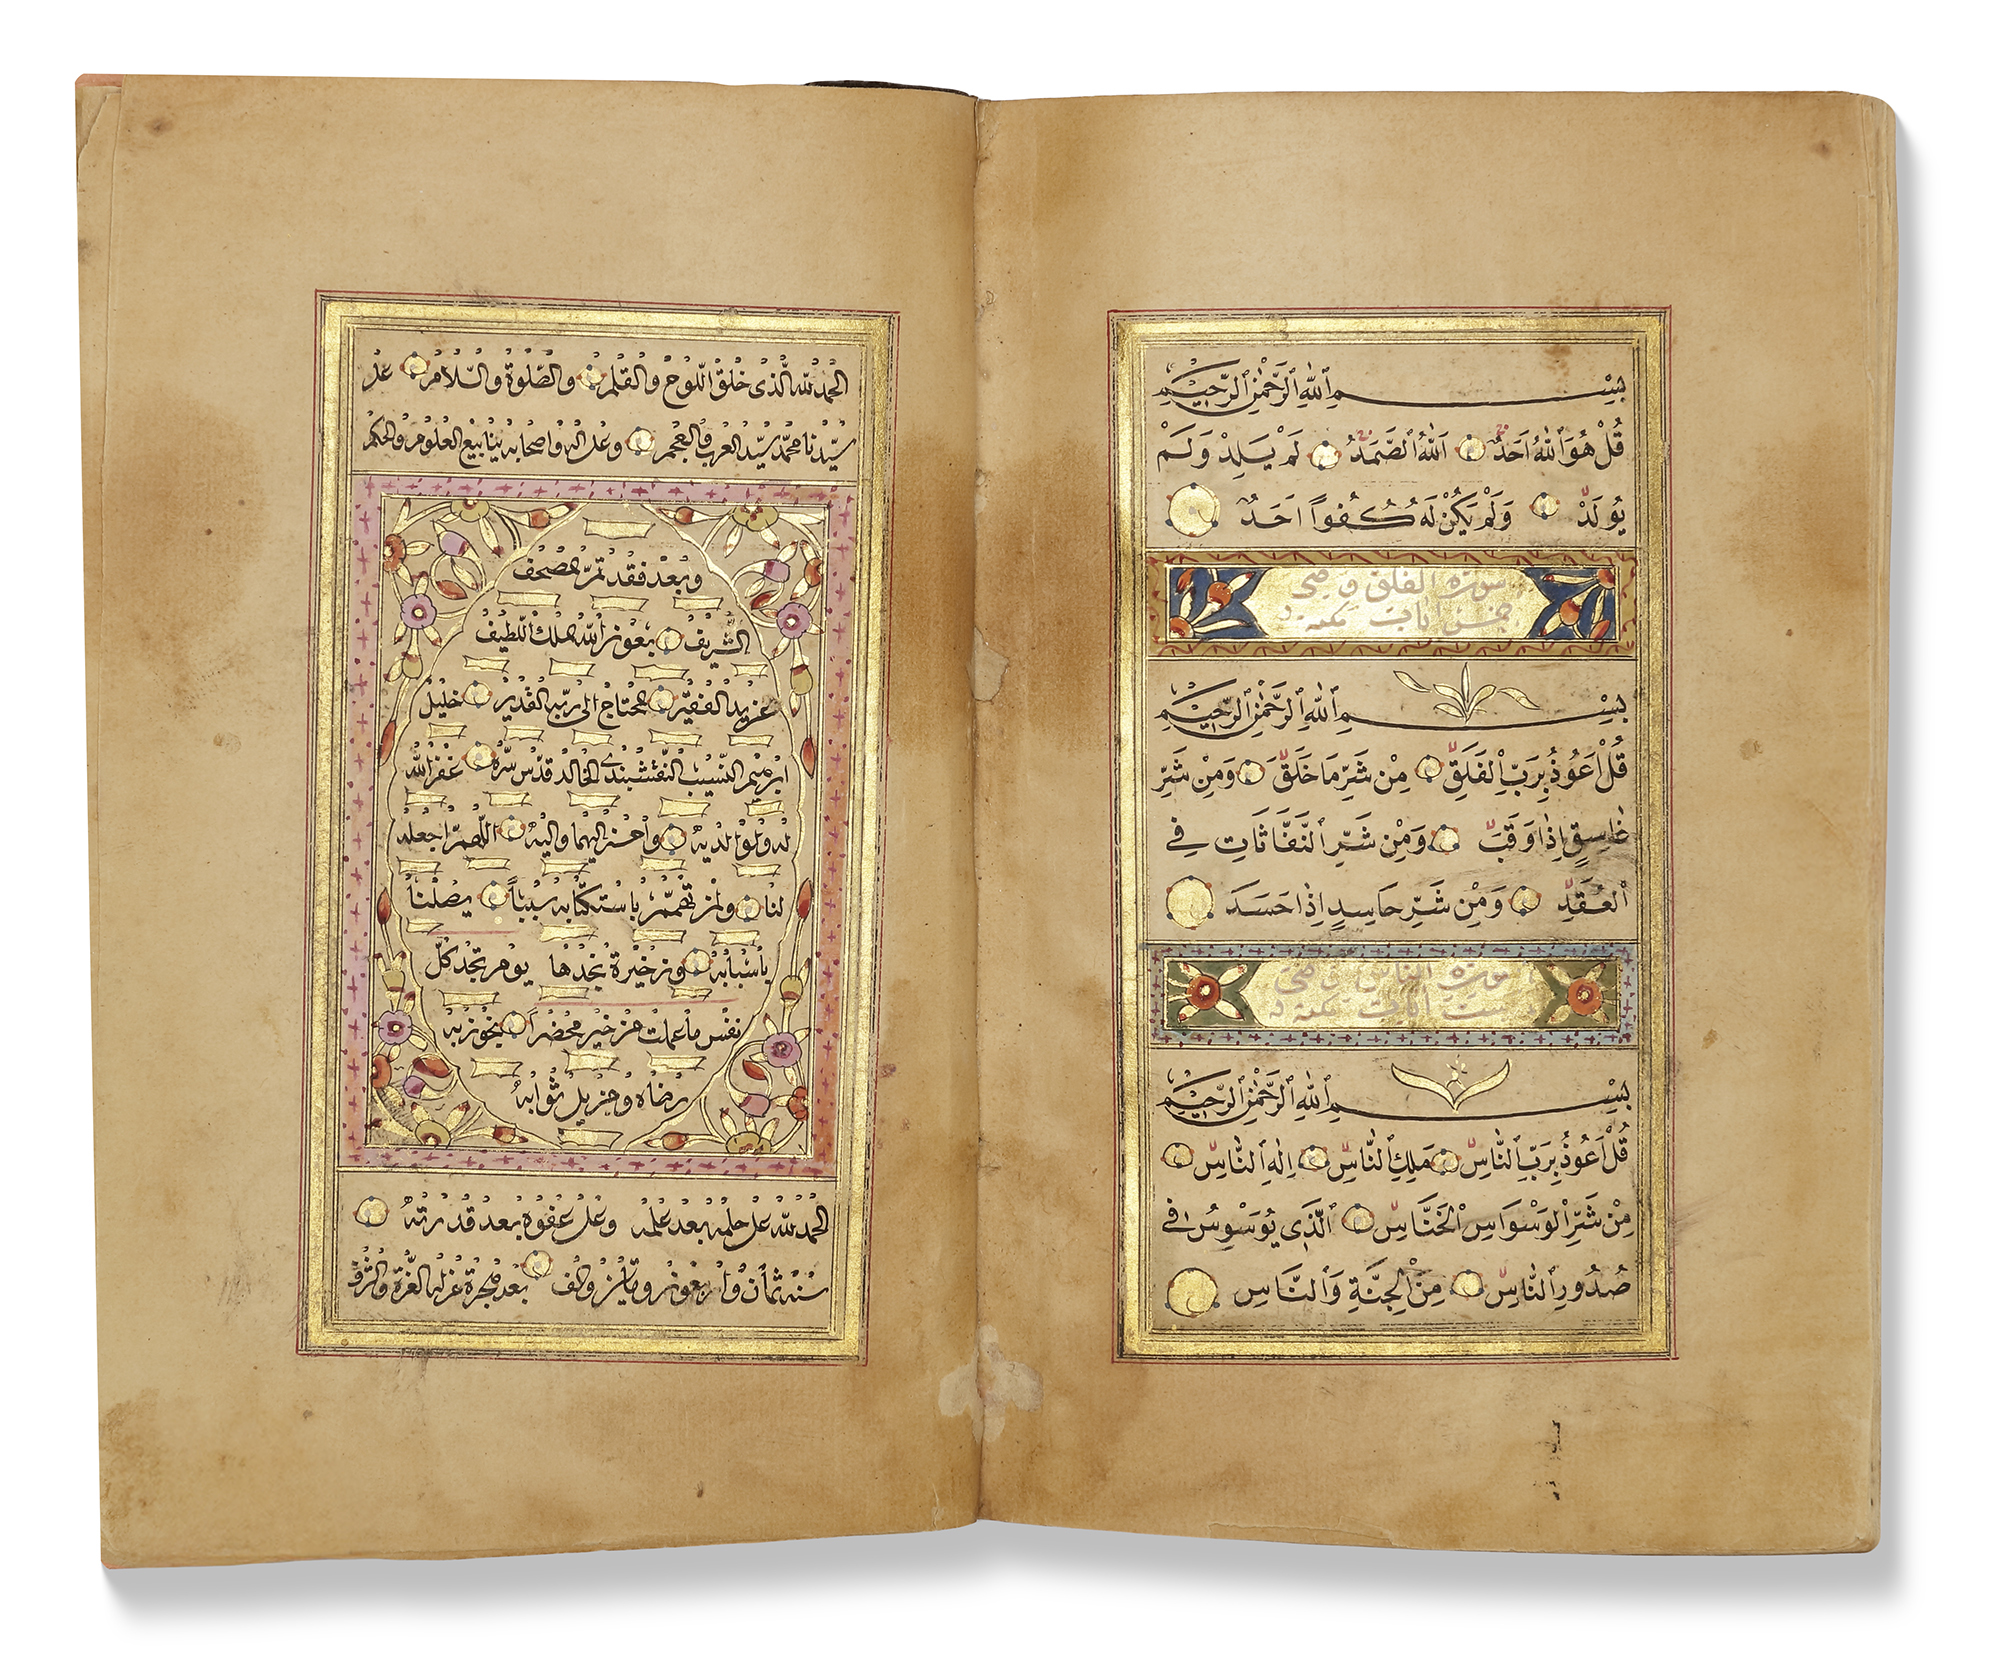 بِسْمِ ٱللّٰهِ ٱلرَّحْمٰنِ ٱلرَّحِيْمِ
قُلْ هُوَ ٱللّٰهُ اَحَدٌ اَللّٰهُ ٱلصَّمَدُ لَمْ يَلِدْ وَلَمْ
يُولَدْ وَلَمْ يَكُنْ لَهُ كُفُواً اَحَدٌ
سورة الفلق وهى
خمس ايات مكيه
بِسْمِ ٱللّٰهِ ٱلرَّحْمٰنِ ٱلرَّحِيْمِ
قُلْ اَعُوذُ بِرَبِّ ٱلفَلَقِ مِنْ شَرِّ مَا خَلَقَ وَمِنْ شَرِّ
غَاسِقٍ اِذَا وَقَبَ وَمِنْ شَرِّ ٱلنَّفَّاثَاتِ فِى
ٱلعُقَدِ وَمِنْ شَرِّ حَاسِدٍ اِذَا حَسَدَ
سورة الناس وهى
ست ايات مكيه
بِسْمِ ٱللّٰهِ ٱلرَّحْمٰنِ ٱلرَّحِيْمِ
قُلْ اَعُوذُ بِرَبِّ ٱلنَّاسِ مَلِكِ ٱلنَّاسِ اِلٰهِ ٱلنَّاسِ
مِنْ شَرِّ ٱلوَسْوَاسِ ٱلخَنَّاسِ ٱلَّذِى يُوَسْوِسُ فِى
صُدُورِ ٱلنَّاسِ مِنَ ٱلجِنَّةِ وَٱلنَّاسِ
الحمد لله الذى خلق اللوح والقلم والصلوة والسلام على
سيدنا محمد سيد العرب والعجم وعلى اله واصحابه ينابيع العلوم والحكم
وبعد فقد تم المصحف
الشريف بعون الله الملك اللطيف
الفقير المحتاج الى ربه القدير خليل
ابرهيم النقشبندى الخالد قدس سره غفر الله
له ولوالديه واحسن اليهما واليه اللهم اجعله
لنا ولمن باستكتابه سببا يصلنا
باسبابه وذخيرة نجدها يوم تجد كل
نفس ما عملت من خير محضرا يحوز به
رضاه وجزيل ثوابه
الحمد لله على حلمه بعد علمه وعلى عفوه بعد قدرته
سنة ثمان واربعون ومايتين والف بعد هجرة من له العزة والشرف